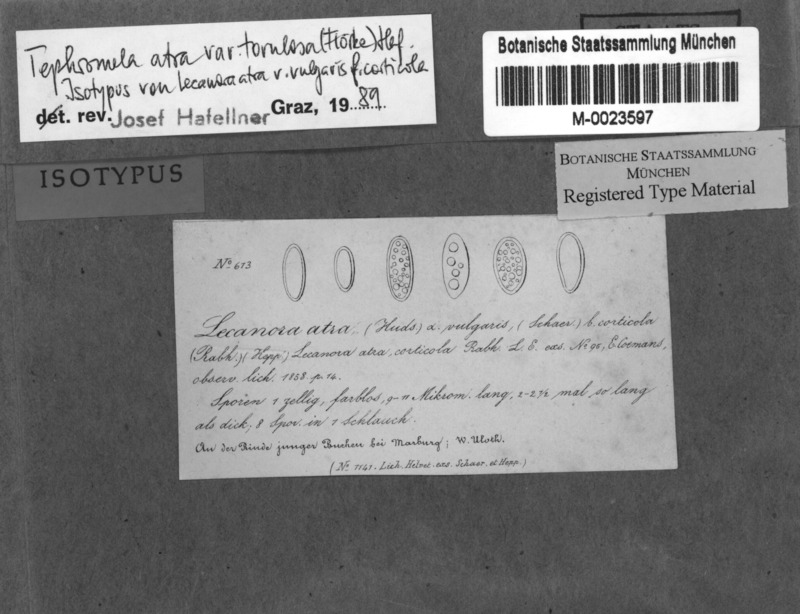 Tephromela atra var. torulosa (Flörke) Haf.
Isotypus von Lecanora atra v. vulgaris f. corticola
det. rev. Josef Hafellner Graz, 1989
Botanische Staatssammlung München
M-0023597
ISOTYPUS
BOTANISCHE STAATSSAMMLUNG
MÜNCHEN
Registered Type Material
No 673
Lecanora atra. (Huds) α. vulgaris, (Schaer.) b. corticola
(Rabh.) (Hepp.) Lecanora atra, corticola Rabh. L. E. exs. No 95, E. Coemans,
observ. lich. 1858. p. 14.
Sporen 1 zellig, farblos, 9-11 Mikrom. lang, 2-2½ mal, so lang
als dick, 8 Spor. in 1 Schlauch.
An der Rinde junger Buchen bei Marburg; W. Uloth.
(No 1141. Lich. Helvet. exs. Schaer. et Hepp.)